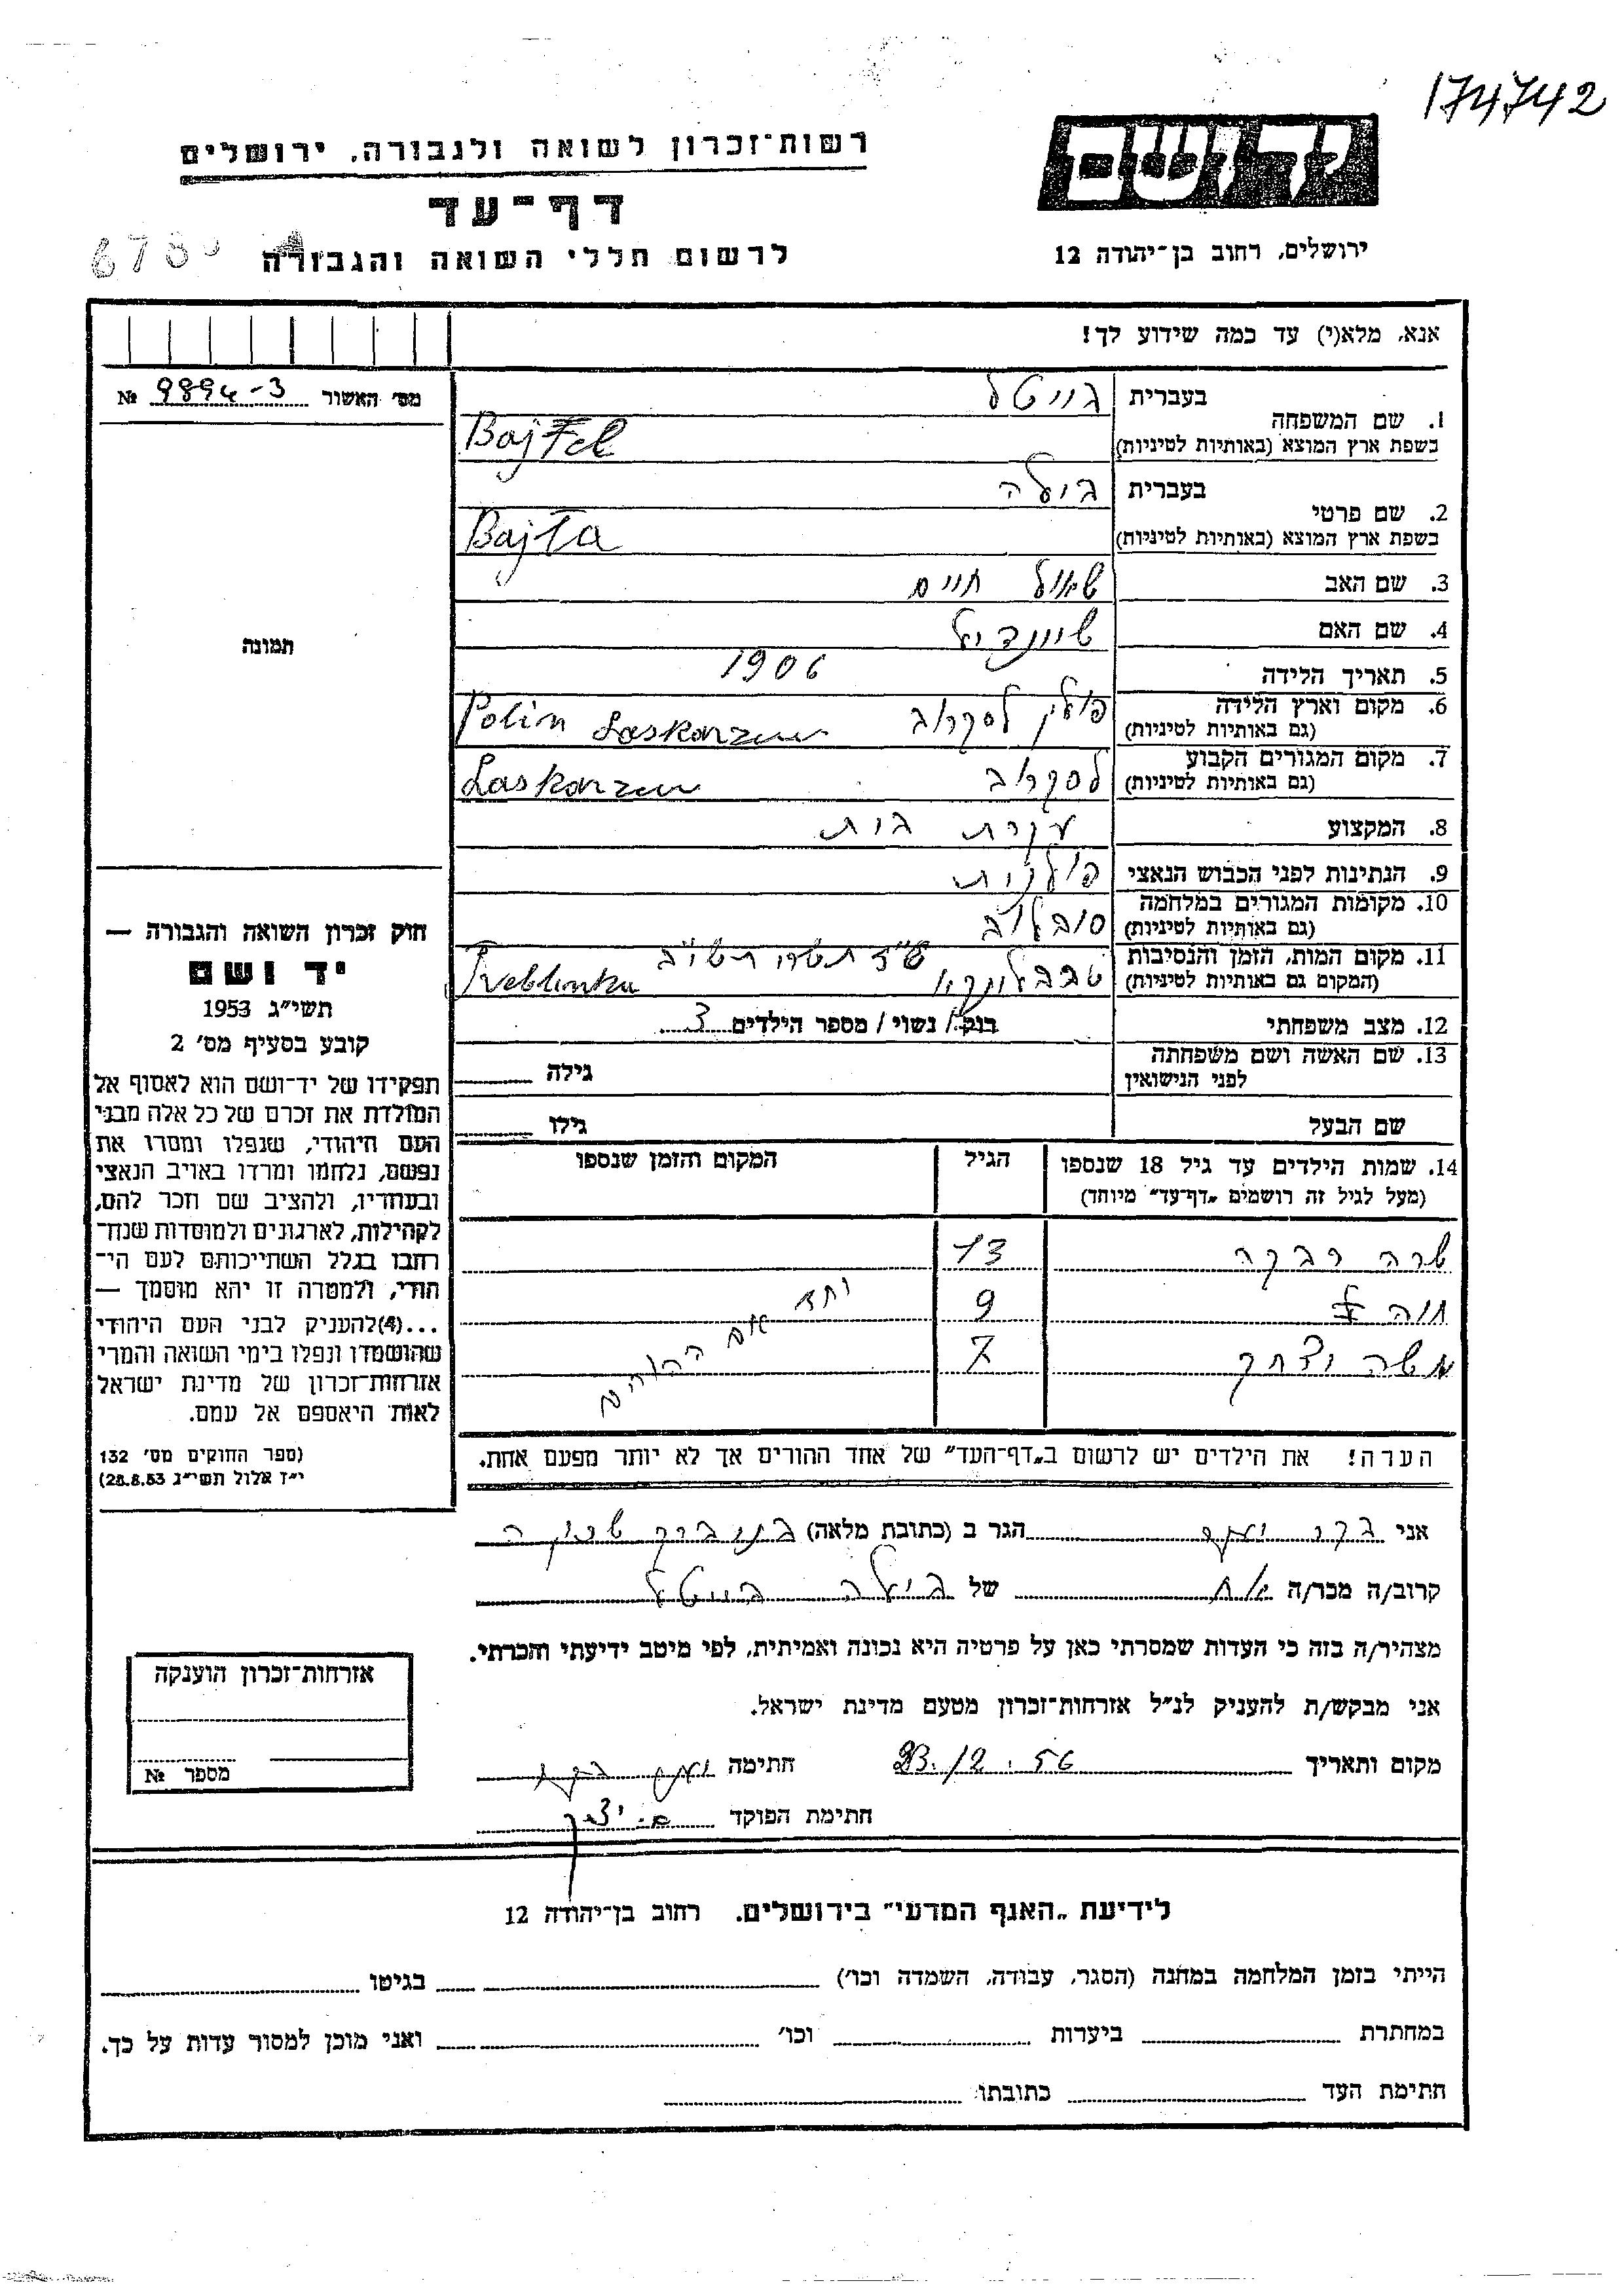 174742
יד ושם
רשות־זכרון לשואה ולגבורה, ירושלים
דף־עד
לרשום חללי השואה והגבורה
ירושלים, רחוב בן־יהודה 12
אנא, מלא(י) עד כמה שידוע לך!
מס׳ האשור 9894-3 №
1. שם המשפחה
בעברית בייטל
בשפת ארץ המוצא (באותיות לטיניות) Bajtel
2. שם פרטי
בעברית בילה
בשפת ארץ המוצא (באותיות לטיניות) Bajla
3. שם האב שאול חיים
4. שם האם שיינדיל
5. תאריך הלידה 1906
6. מקום וארץ הלידה פולין לסקרוב
(גם באותיות לטיניות) Polin Laskarzew
7. מקום המגורים הקבוע לסקרוב
(גם באותיות לטיניות) Laskarzew
8. המקצוע עקרת בית
9. הנתינות לפני הכבוש הנאצי פולנית
10. מקומות המגורים במלחמה
(גם באותיות לטיניות) סובלוב
11. מקום המות, הזמן והנסיבות תשרי תש״ג
(המקום גם באותיות לטיניות) טרבלינקה Treblinka
12. מצב משפחתי רווק / נשוי / מספר הילדים 3
13. שם האשה ושם משפחתה
לפני הנישואין גילה
שם הבעל גילו
14. שמות הילדים עד גיל 18 שנספו הגיל המקום והזמן שנספו
(מעל לגיל זה רושמים „דף־עד״ מיוחד)
שרה רבקה 13
חוה 9
משה יצחק 7
יחד עם ההורים
הערה! את הילדים יש לרשום ב„דף־העד״ של אחד ההורים אך לא יותר מפעם אחת.
תמונה
חוק זכרון השואה והגבורה —
יד ושם
תשי״ג 1953
קובע בסעיף מס׳ 2
תפקידו של יד־ושם הוא לאסוף אל
המולדת את זכרם של כל אלה מבני
העם היהודי, שנפלו ומסרו את
נפשם, נלחמו ומרדו באויב הנאצי
ובעוזריו, ולהציב שם וזכר להם,
לקהילות, לארגונים ולמוסדות שנח־
רבו בגלל השתייכותם לעם הי־
הודי, ולמטרה זו יהא מוסמך —
...(4)להעניק לבני העם היהודי
שהושמדו ונפלו בימי השואה והמרי
אזרחות־זכרון של מדינת ישראל
לאות היאספם אל עמם.
(ספר החוקים מס׳ 132
י״ז אלול תשי״ג 28.8.53)
אני הגר ב (כתובת מלאה) בני ברק
קרוב/ה מכר/ה אח של בילה בייטל
מצהיר/ה בזה כי העדות שמסרתי כאן על פרטיה היא נכונה ואמיתית, לפי מיטב ידיעתי והכרתי.
אני מבקש/ת להעניק לנ״ל אזרחות־זכרון מטעם מדינת ישראל.
מקום ותאריך 23.12.56 חתימה
חתימת הפוקד
אזרחות־זכרון הוענקה
מספר №
לידיעת „האגף המדעי״ בירושלים. רחוב בן־יהודה 12
הייתי בזמן המלחמה במחנה (הסגר, עבודה, השמדה וכו׳) בגיטו
במחתרת ביערות וכו׳ ואני מוכן למסור עדות על כך.
חתימת העד כתובתו